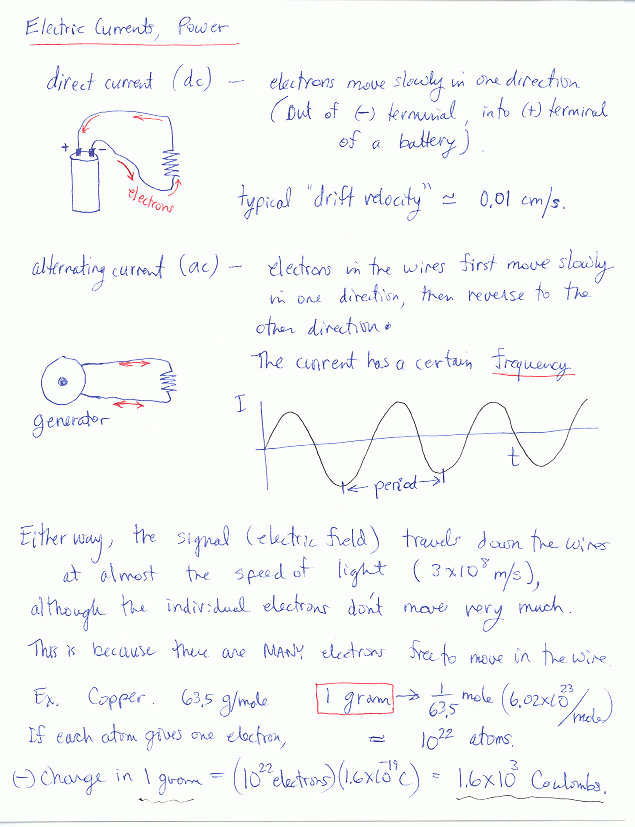 Electric Currents, Power
direct current (dc) – electrons move slowly in one direction
(Out of (-) terminal, into (+) terminal
of a battery).
+ –
electrons
typical "drift velocity" ≃ 0,01 cm/s.
alternating current (ac) – electrons in the wires first move slowly
in one direction, then reverse to the
other direction.
The current has a certain frequency
generator
I
t
period
Either way, the signal (electric field) travels down the wires
at almost the speed of light (3x10⁸ m/s),
although the individual electrons don't move very much.
This is because there are MANY electrons free to move in the wire.
Ex. Copper. 63,5 g/mole 1 gram → 1/63,5 mole (6,02x10²³/mole)
If each atom gives one electron, ≃ 10²² atoms.
(-) Charge in 1 gram = (10²² electrons)(1.6x10⁻¹⁹ C) = 1.6x10³ Coulombs.